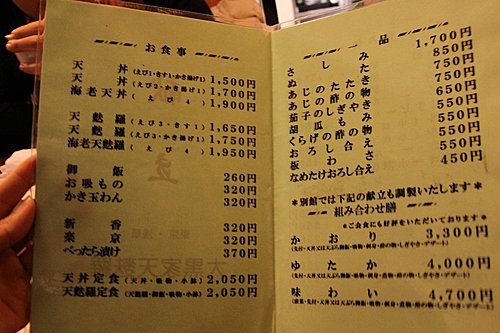 お食事
天丼(えび1・きす1・かき揚げ1) 1,500円
天丼(えび2・かき揚げ1) 1,700円
海老天丼(えび4) 1,900円
天麩羅(えび3・きす1) 1,650円
天麩羅(えび3・かき揚げ1) 1,750円
海老天麩羅(えび4) 1,950円
御飯 260円
お吸もの 320円
かき玉わん 320円
新香 320円
楽京 320円
べったら漬け 370円
天丼定食(天丼・吸物・小鉢) 2,050円
天麩羅定食(天麩羅・御飯・吸物・小鉢) 2,050円
一品
さしみ 1,700円
ぬた 850円
あじのたたき 750円
あじの酢の物 750円
茄子のしぎやき 650円
胡瓜もみ 550円
くらげの酢の物 550円
おろし合え 550円
板わさ 550円
なめたけおろし合え 450円
*別館では下記の献立も調製いたします*
組み合わせ膳
*ご会食にも好評をいただいております*
かおり 3,300円
ゆたか 4,000円
味わい 4,700円